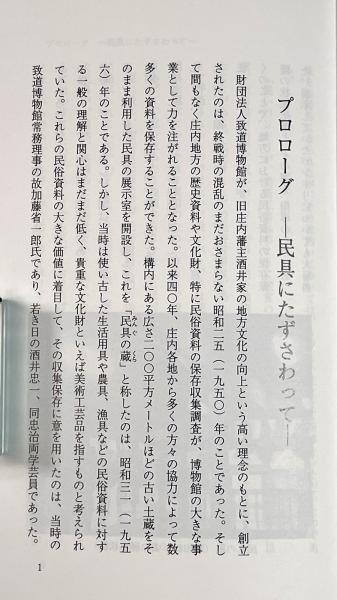 プロローグ ―民具にたずさわって―
財団法人致道博物館が、旧庄内藩主酒井家の地方文化の向上という高い理念のもとに、創立
されたのは、終戦時の混乱のまだおさまらない昭和二五（一九五〇）年のことであった。そし
て間もなく庄内地方の歴史資料や文化財、特に民俗資料の保存収集調査が、博物館の大きな事
業として力を注がれることとなった。以来四〇年、庄内各地から多くの方々の協力によって数
多くの資料を保存することができた。構内にある広さ二〇〇平方メートルほどの古い土蔵をそ
のまま利用した民具の展示室を開設し、これを「民具の蔵」と称したのは、昭和三一（一九五
六）年のことである。しかし、当時は使い古した生活用具や農具、漁具などの民俗資料に対す
る一般の理解と関心はまだまだ低く、貴重な文化財といえば美術工芸品を指すものと考えられ
ていた。これらの民俗資料の大きな価値に着目して、その収集保存に意を用いたのは、当時の
致道博物館常務理事の故加藤省一郎氏であり、若き日の酒井忠一、同忠治両学芸員であった。
1